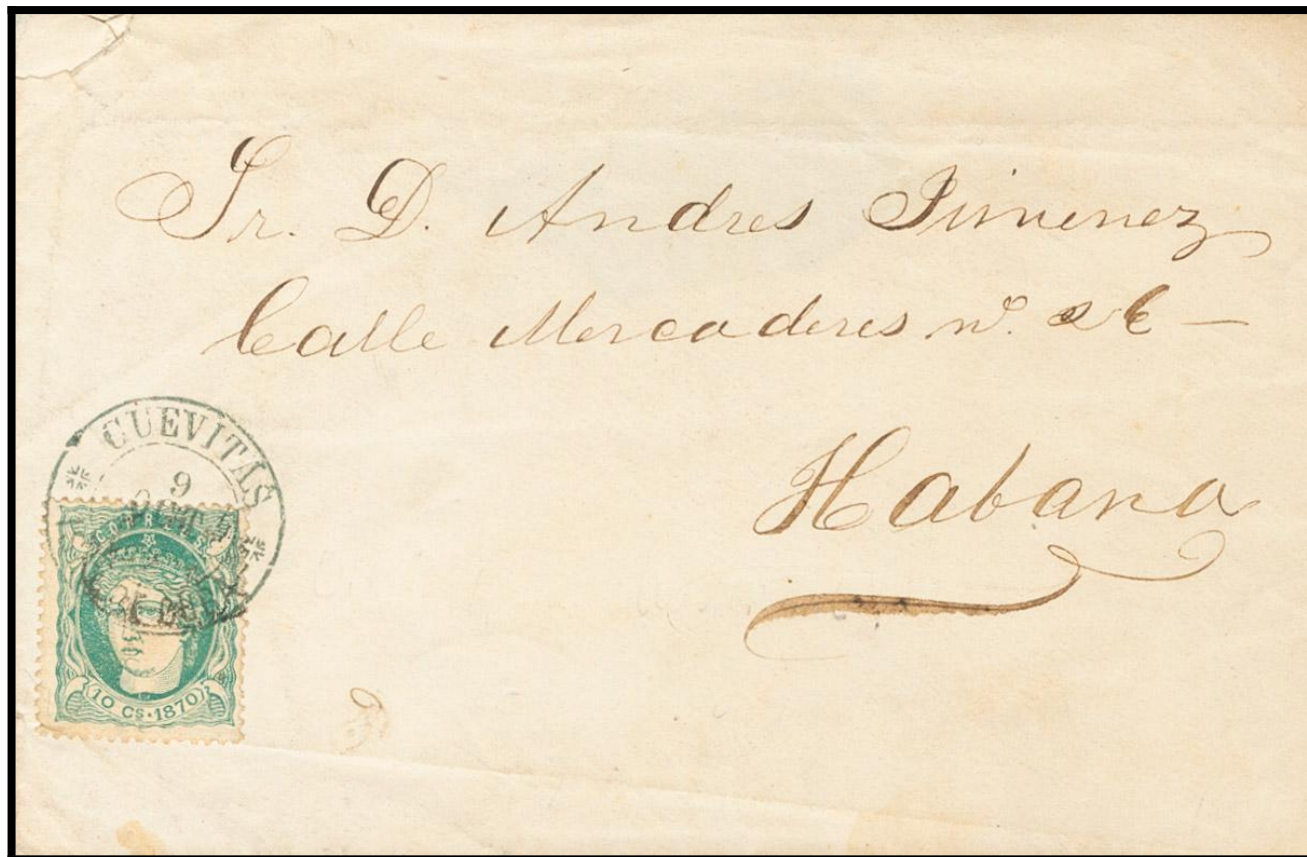 Sr. D. Andres Jimenez
Calle Mercaderes nº. 26 —
Habana
CUEVITAS
9
CORREOS
10 CS. 1870